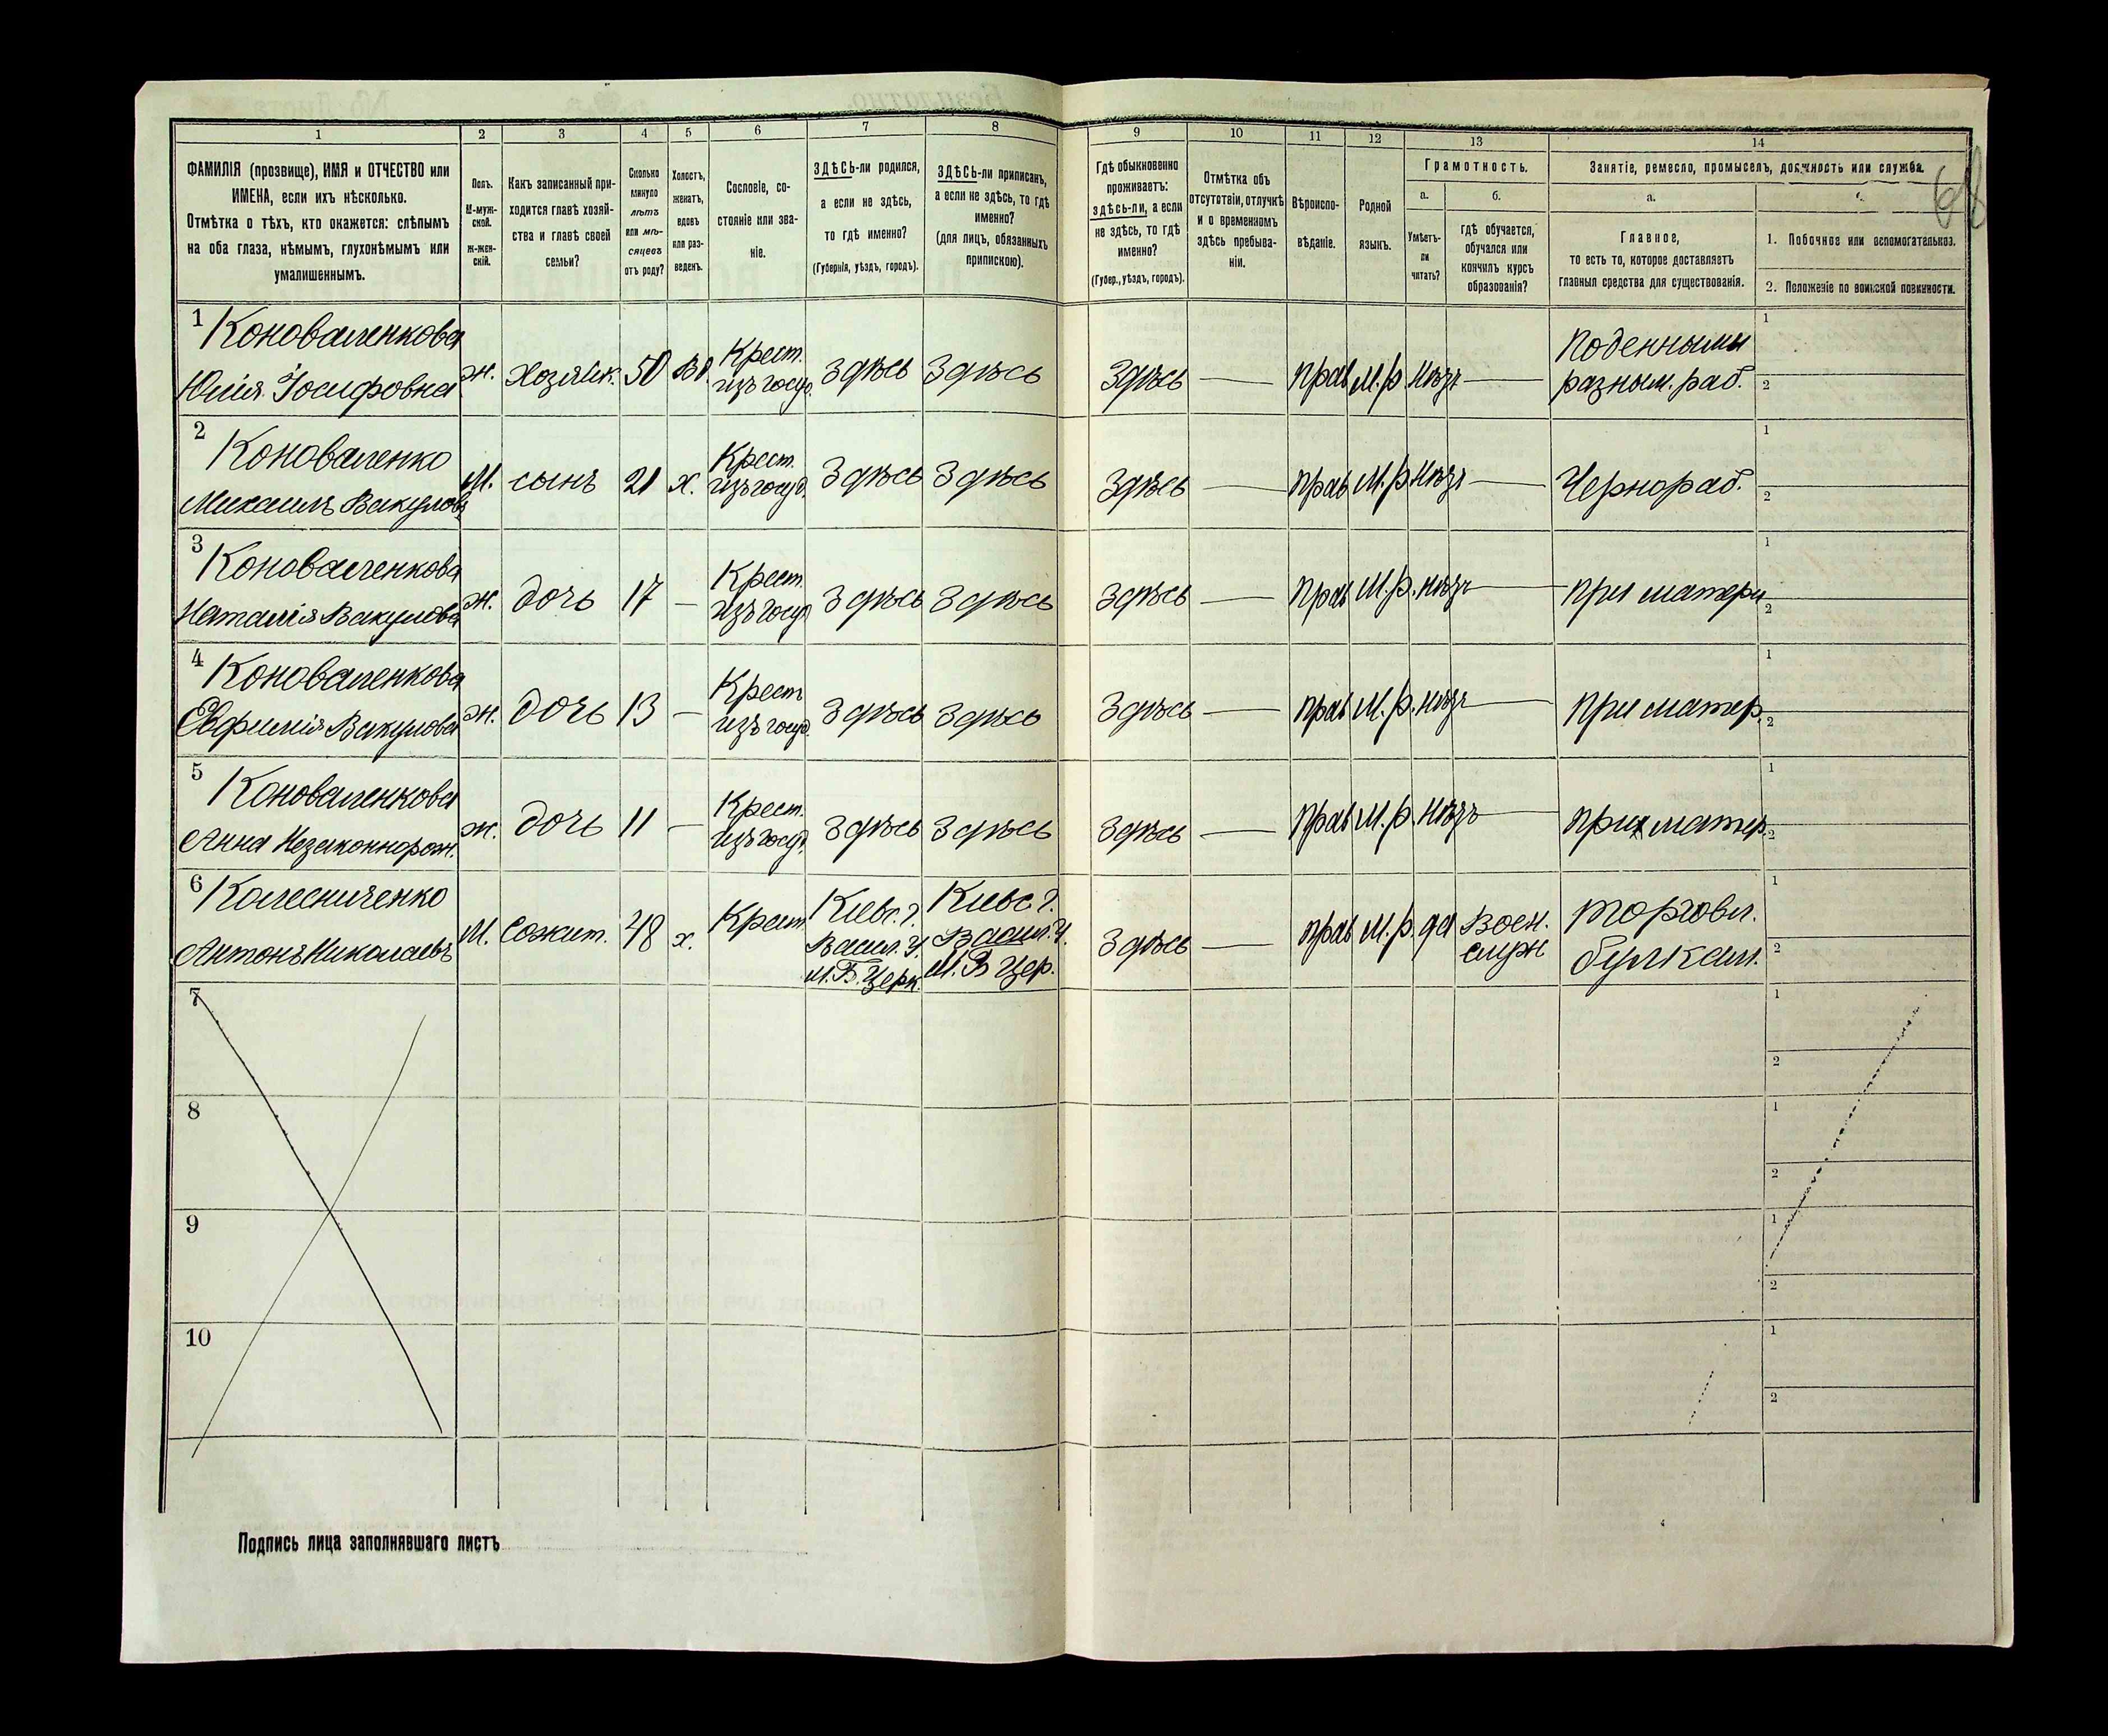 1 2 3 4 5 6 7 8 9 10 11 12 13 14
68
ФАМИЛІЯ (прозвище), ИМЯ и ОТЧЕСТВО или
ИМЕНА, если ихъ нѣсколько.
Отмѣтка о тѣхъ, кто окажется: слѣпымъ
на оба глаза, нѣмымъ, глухонѣмымъ или
умалишеннымъ.
Полъ.
М-муж-
ской.
ж-жен-
скій.
Какъ записанный при-
ходится главѣ хозяй-
ства и главѣ своей
семьи?
Сколько
минуло
лѣтъ
или мѣ-
сяцевъ
отъ роду?
Холостъ,
женатъ,
вдовъ
или раз-
веденъ.
Сословіе, со-
стояніе или зва-
ніе.
ЗДѢСЬ-ли родился,
а если не здѣсь,
то гдѣ именно?
(Губернія, уѣздъ, городъ).
ЗДѢСЬ-ли приписанъ,
а если не здѣсь, то гдѣ
именно?
(для лицъ, обязанныхъ
припискою).
Гдѣ обыкновенно
проживаетъ:
здѣсь-ли, а если
не здѣсь, то гдѣ
именно?
(Губер., уѣздъ, городъ).
Отмѣтка объ
отсутствіи, отлучкѣ
и о временномъ
здѣсь пребыва-
ніи.
Вѣроиспо-
вѣданіе.
Родной
языкъ.
Грамотность.
а. б.
Умѣетъ-
ли
читать?
гдѣ обучается,
обучался или
кончилъ курсъ
образованія?
Занятіе, ремесло, промыселъ, должность или служба.
а.
Главное,
то есть то, которое доставляетъ
главныя средства для существованія.
1. Побочное или вспомогательное.
2. Положеніе по воинской повинности.
1 Коноваленкова
Юлія Іосифовна ж. Хозяйк. 50 вд. Крест. изъ госуд. Здѣсь Здѣсь Здѣсь — прав М.р. нѣтъ — Поденными разным. раб. 1 2
2 Коноваленко
Михаилъ Вакуловъ М. сынъ 21 х. Крест. изъ госуд. Здѣсь Здѣсь Здѣсь — прав М.р. нѣтъ — Чернораб. 1 2
3 Коноваленкова
Наталія Вакулова ж. дочь 17 — Крест. изъ госуд. Здѣсь Здѣсь Здѣсь — прав М.р. нѣтъ — при матери 1 2
4 Коноваленкова
Евфимія Вакулова ж. дочь 13 — Крест изъ госуд. Здѣсь Здѣсь Здѣсь — прав М.р. нѣтъ — при матер. 1 2
5 Коноваленкова
Анна Незаконнорож. ж. дочь 11 — Крест. изъ госуд. Здѣсь Здѣсь Здѣсь — прав М.р. нѣтъ — при матер. 1 2
6 Колесниченко
Антонъ Николаевъ М. Сожит. 48 х. Крест. Кіевс. г. Васил. у. м. Б. Церк. Кіевс г. Васил. у. м. Б Цер. Здѣсь — прав М.р. да Воен. служ торговл. булкам. 1 2
7 1 2
8 1 2
9 1 2
10 1 2
Подпись лица заполнявшаго листъ